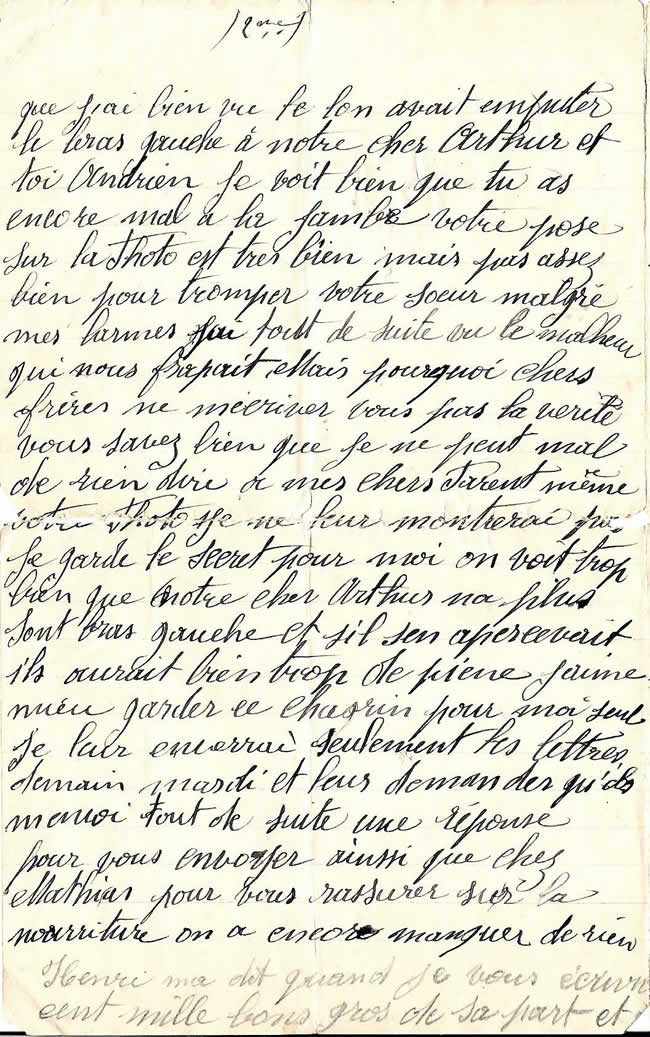 (2eme)
que j'ai bien vu le lon avait emputter
le bras gauche à notre cher Arthur et
toi Andrien Je voit bien que tu as
encore mal a la jambe votre pose
sur la Photo est tres bien mais pas assez
bien pour tromper votre soeur malgré
mes larmes j'ai tout de suite vu le malheur
qui nous frapait Mais pourquoi chers
frères ne mécriver vous pas la verité
vous savez bien que je ne peut mal
de rien dire a mes chers Parent même
votre Photo Je ne leur montrerai pas
Je garde le secret pour moi on voit trop
bien que notre cher Arthur na plus
sont bras gauche et sil sen apercevait
ils aurait bien trop de piene jaime
mieu garder ce chagrin pour moi seul
Je leur enverrai seulement les lettres
demain mardi et leur demander qu'ils
menvoi tout de suite une réponse
pour vous envoyer ainssi que chez
Mathias pour vous rassurer sur la
nourriture on a encore manquer de rien
Henri ma dit quand je vous écrivai
cent mille bons gros de sa part et